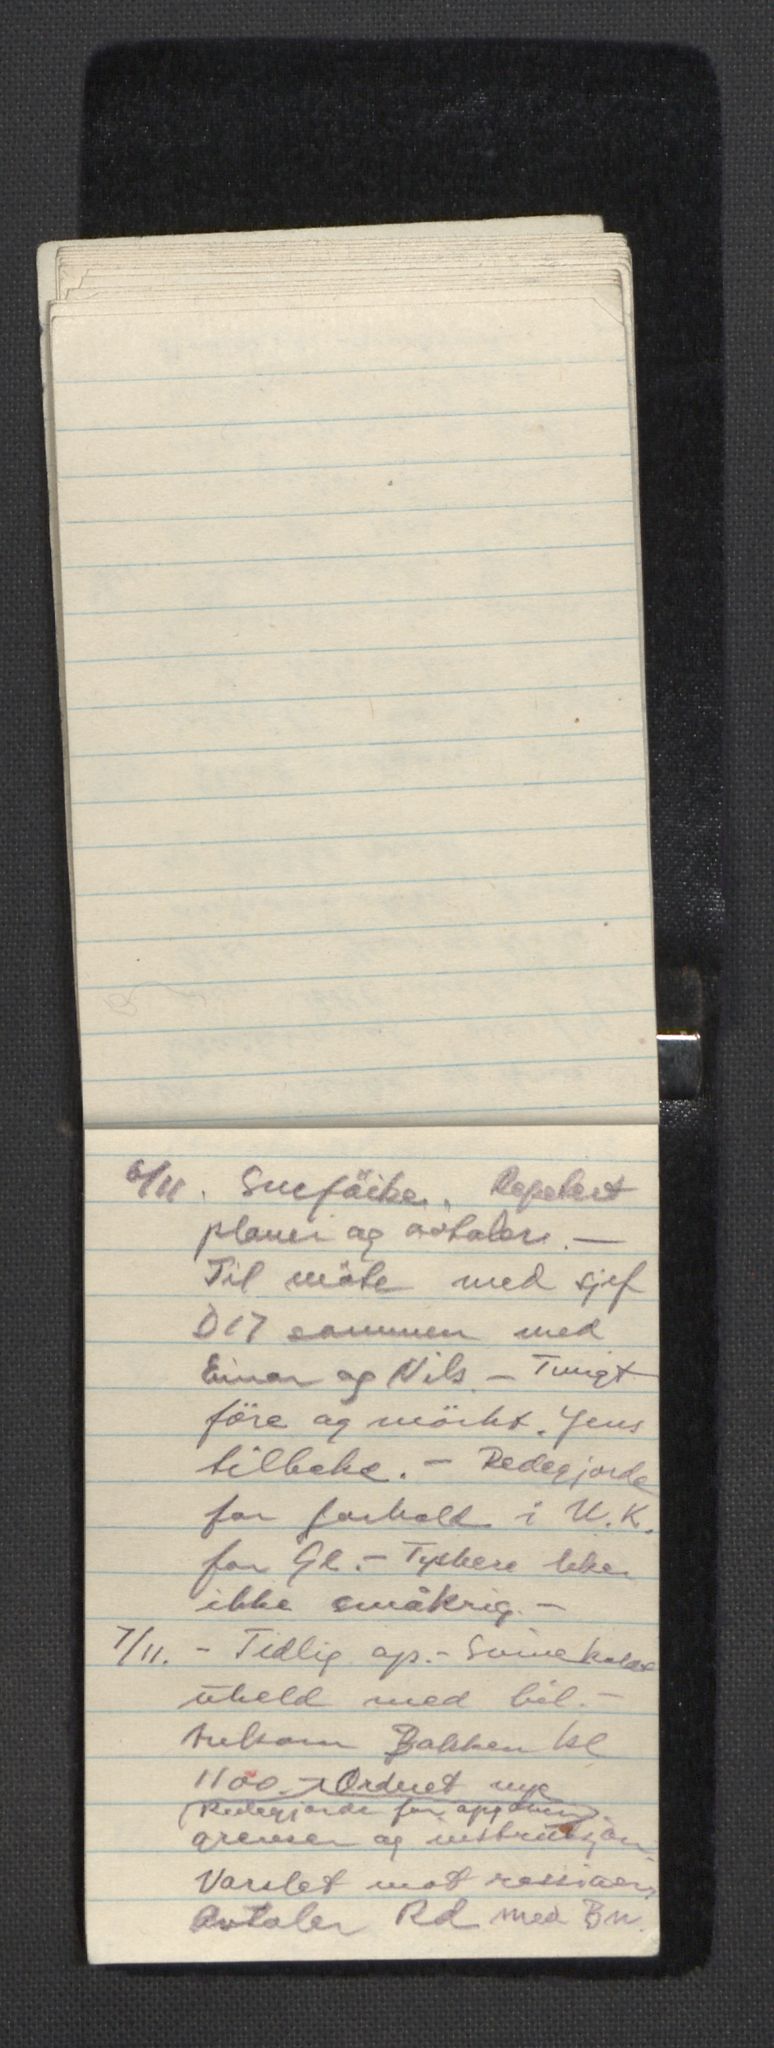 6/11. Snefåike. Repetert
planer og avtaler. —
Til möte med sjef
D17 sammen med
Einar og Nils. — Tungt
före og mörkt. Jens
tilbake. — Redegjorde
for forhold i U.K.
for Gl. — Tyskere liker
ikke småkrig. —
7/11. — Tidlig op. — Svinekaldt
uheld med bil. —
Ankom Bakken kl
1100. — Ordnet nye
(Redegjorde for opgaven).
grenser og instruksjon.
Varslet mot rassiaer.
Avtaler Rd med Bn.